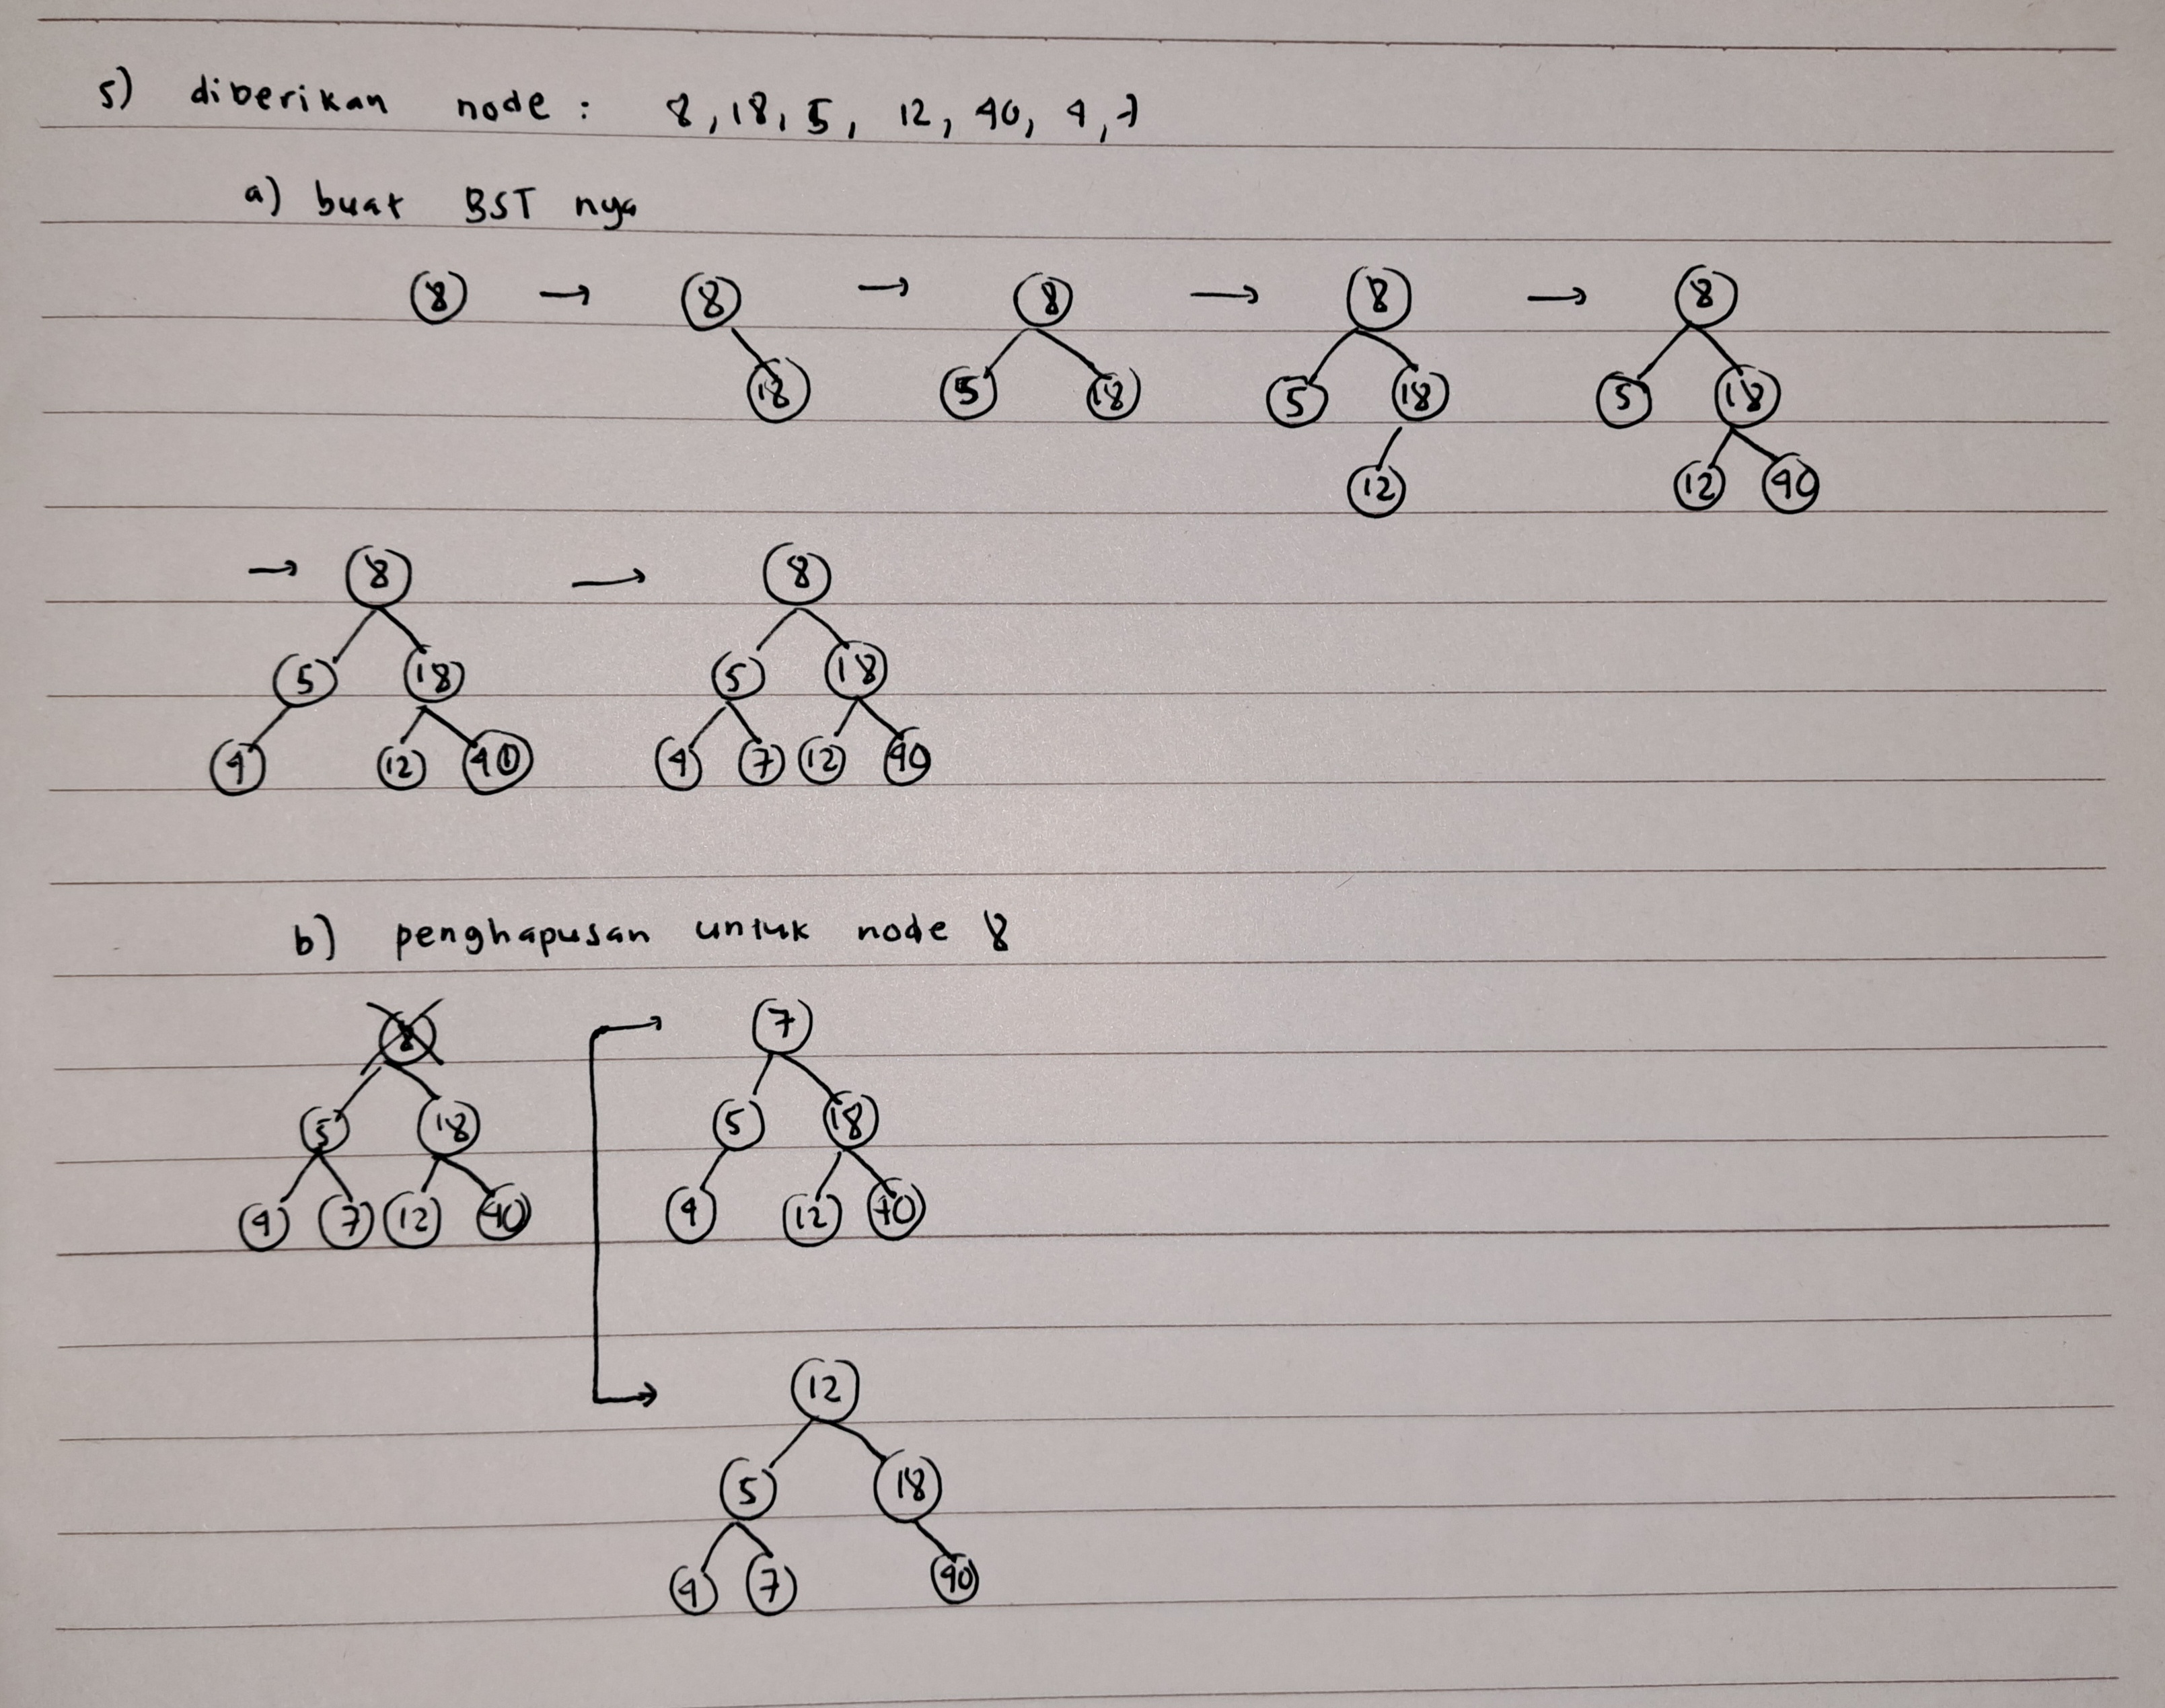 5) diberikan node : 8, 18, 5, 12, 40, 4, 7
a) buat BST nya
8 → 8 → 8 → 8 → 8
18 5 18 5 18 5 18
12 12 40
→ 8 → 8
5 18 5 18
4 12 40 4 7 12 40
b) penghapusan untuk node 8
8 → 7
5 18 5 18
4 7 12 40 4 12 40
→ 12
5 18
4 7 40